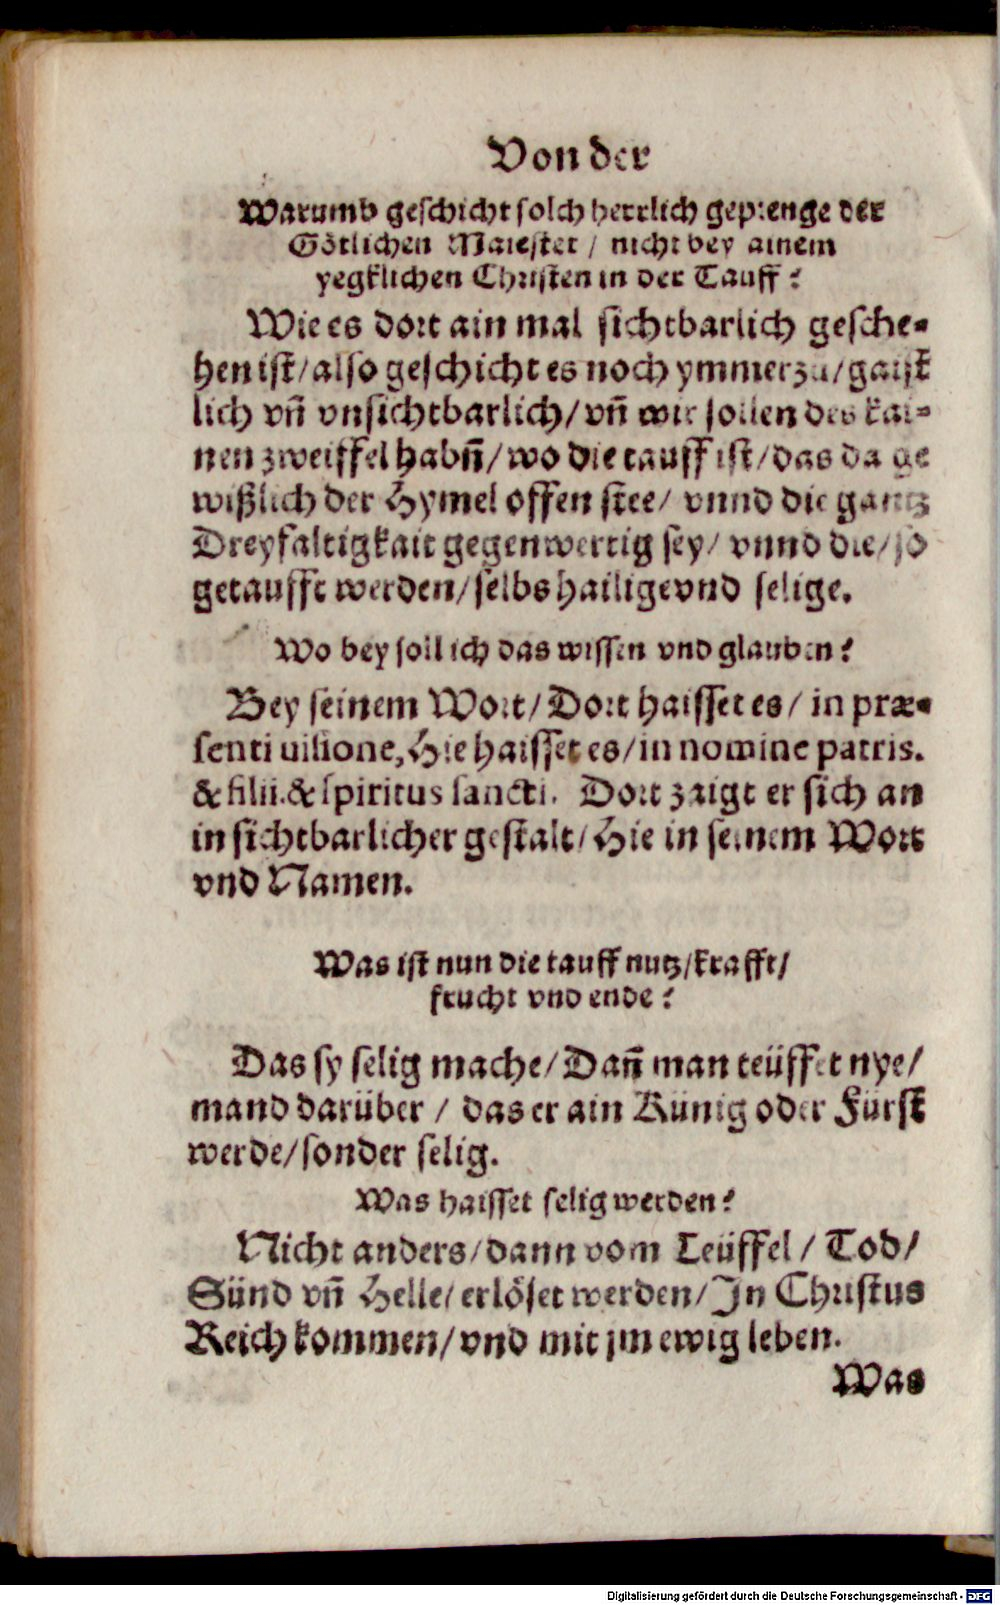 Von der
Warumb geschicht solch herrlich geprenge der
Götlichen Maiestet / nicht bey ainem
yegklichen Christen in der Tauff?
Wie es dort ain mal sichtbarlich gesche-
hen ist/also geschicht es noch ymmerzu/gaist
lich vn̄ vnsichtbarlich/vn̄ wir sollen des kai-
nen zweiffel habn̄/wo die tauff ist/das da ge
wißlich der Hymel offen stee/ vnnd die gantz
Dreyfaltigkait gegenwertig sey/ vnnd die/so
getaufft werden/selbs hailige vnd selige.
Wo bey soll ich das wissen vnd glauben?
Bey seinem Wort/Dort haisset es/ in præ-
senti uisione, Hie haisset es/in nomine patris.
& filii.& spiritus sancti. Dort zaigt er sich an
in sichtbarlicher gestalt/Hie in seinem Wort
vnd Namen.
Was ist nun die tauff nutz/krafft/
frucht vnd ende?
Das sy selig mache/Dan̄ man teüffet nye/
mand darüber / das er ain Künig oder Fürst
werde/sonder selig.
Was haisset selig werden?
Nicht anders/dann vom Teüffel / Tod/
Sünd vn̄ Helle/erlöset werden/In Christus
Reich kommen/vnd mit jm ewig leben.
Was
Digitalisierung gefördert durch die Deutsche Forschungsgemeinschaft - DFG